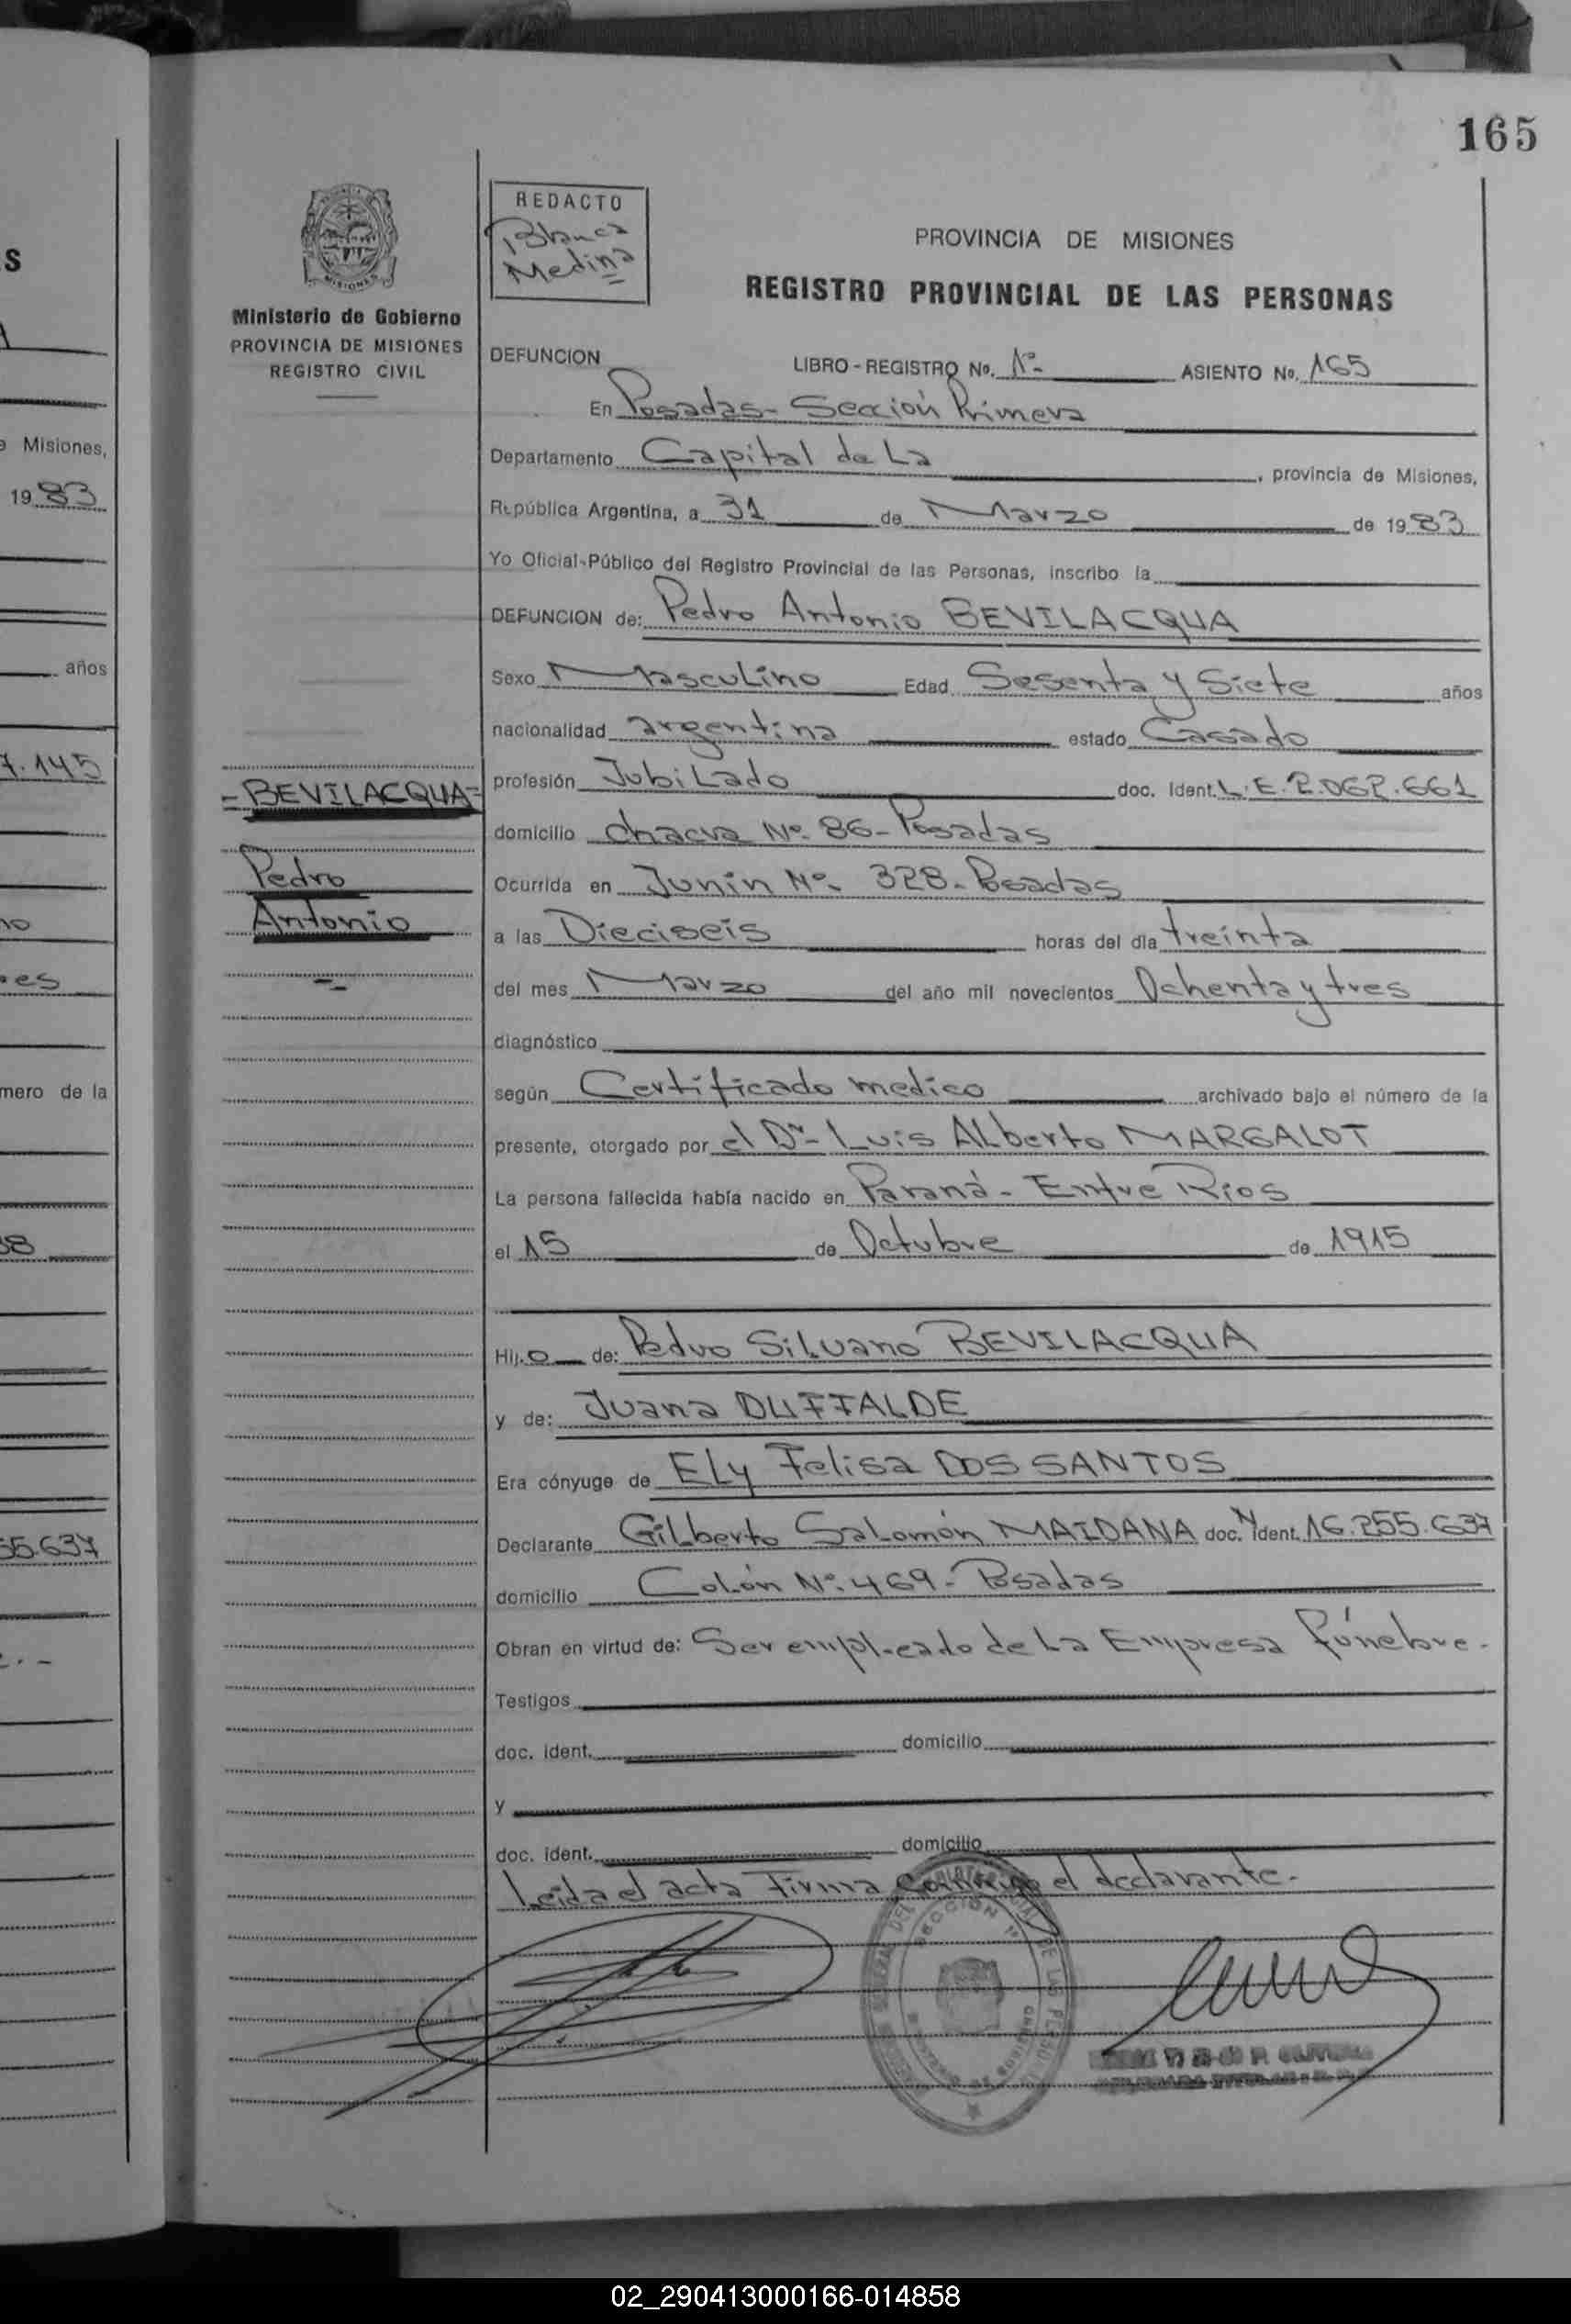 165
REDACTO
Blanca
Medina
MISIONES
Ministerio de Gobierno
PROVINCIA DE MISIONES
REGISTRO CIVIL
PROVINCIA DE MISIONES
REGISTRO PROVINCIAL DE LAS PERSONAS
DEFUNCION LIBRO-REGISTRO No. 1º- ASIENTO No. 165
En Posadas- Sección Primera
Departamento Capital de La, provincia de Misiones,
República Argentina, a 31 de Marzo de 1983
Yo Oficial-Público del Registro Provincial de las Personas, inscribo la
DEFUNCION de: Pedro Antonio BEVILACQUA
Sexo Masculino Edad Sesenta y Siete años
nacionalidad argentina estado Casado
profesión Jubilado doc. Ident. L.E. 2.062.661
domicilio chacra Nº. 86- Posadas
Ocurrida en Junin Nº. 328- Posadas
a las Dieciseis horas del día treinta
del mes Marzo del año mil novecientos Ochenta y tres
diagnóstico
según Certificado medico archivado bajo el número de la
presente, otorgado por el Dr- Luis Alberto MARGALOT
La persona fallecida había nacido en Paraná- Entre Rios
el 15 de Octubre de 1915
Hijo de: Pedro Silvano BEVILACQUA
y de: Juana DUFFALDE
Era cónyuge de Ely Felisa DOS SANTOS
Declarante Gilberto Salomón MAIDANA doc. N Ident. 16.255.637
domicilio Colón Nº. 469- Posadas
Obran en virtud de: Ser empleado de La Empresa fúnebre.
Testigos
doc. ident. domicilio
y
doc. ident. domicilio
Leida el acta Firma conmigo el declarante.
-BEVILACQUA=
Pedro
Antonio
S
e Misiones,
1983
años
7.145
no
es
mero de la
38
55.637
SECCION 1ª
02_290413000166-014858